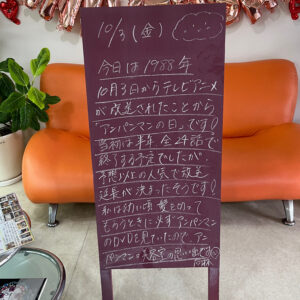 10/3(金)
今日は1988年
10月3日からテレビアニメ
が放送されたことから
「アンパンマンの日」です!
当初は全24話で
終了する予定でしたが、
予想以上の人気で放送
延長が決まったそうです!
私は幼い頃髪を切って
もらうときに必ずアンパンマン
のDVDを見ていたので、アン
パンマン=美容室の思い出です